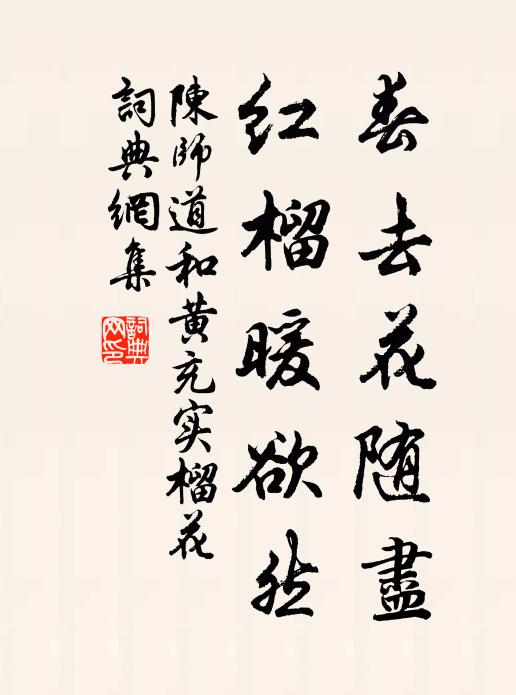 春去花随盡
红榴暖欲然
陳師道和黄充实榴花
詞典網集
詞典網印